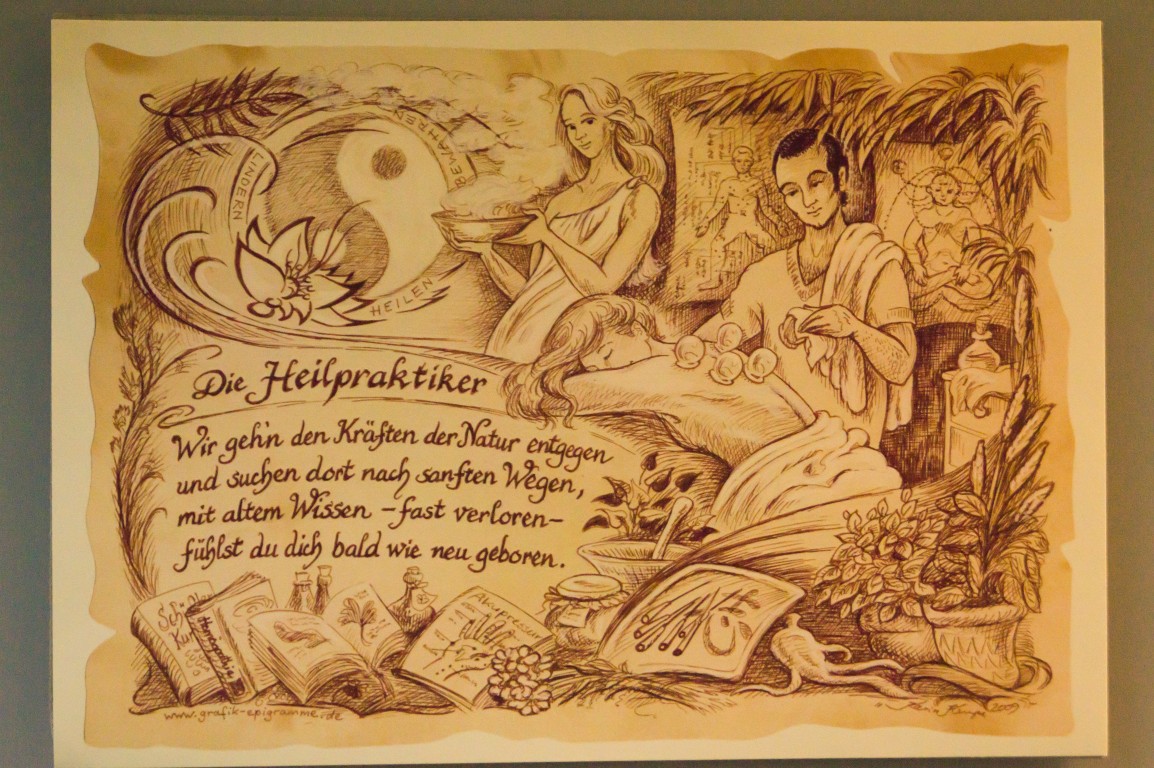 LINDERN
BEWAHREN
HEILEN
Die Heilpraktiker
Wir geh'n den Kräften der Natur entgegen
und suchen dort nach sanften Wegen,
mit altem Wissen – fast verloren –
fühlst du dich bald wie neu geboren.
Akupressur
www.grafik-epigramme.de
2009